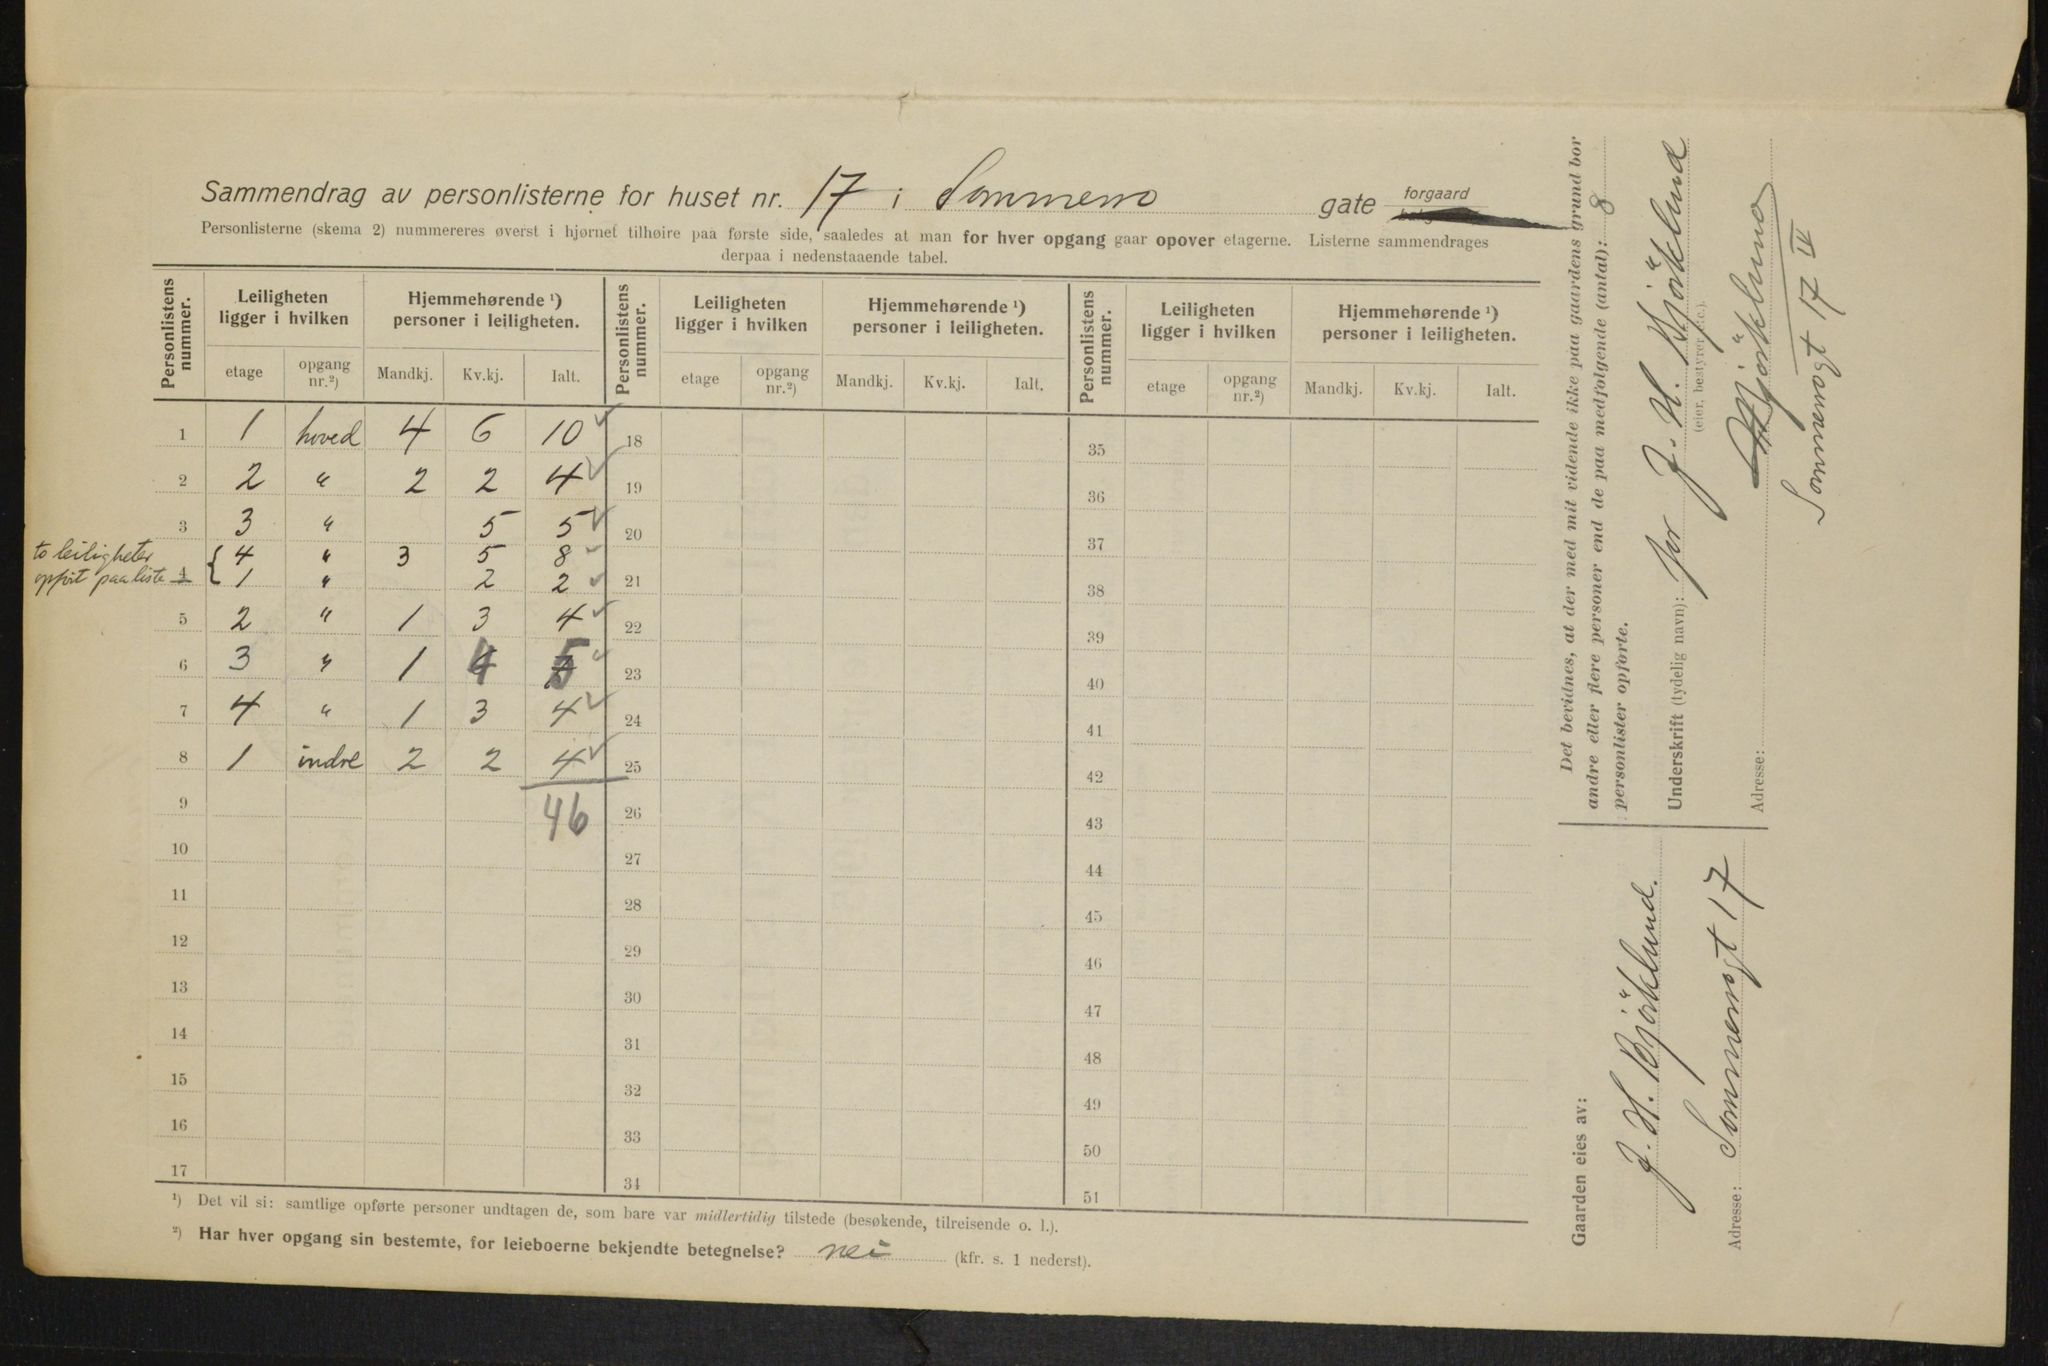 Sammendrag av personlisterne for huset nr. 17 i Sommerro gate forgaard
Personlisterne (skema 2) nummereres øverst i hjørnet tilhøire paa første side, saaledes at man for hver opgang gaar opover etagerne. Listerne sammendrages
derpaa i nedenstaaende tabel.
Personlistens nummer. Leiligheten ligger i hvilken Hjemmehørende ¹) personer i leiligheten. Personlistens nummer. Leiligheten ligger i hvilken Hjemmehørende ¹) personer i leiligheten. Personlistens nummer. Leiligheten ligger i hvilken Hjemmehørende ¹) personer i leiligheten.
etage opgang nr.²) Mandkj. Kv.kj. Ialt. etage opgang nr.²) Mandkj. Kv.kj. Ialt. etage opgang nr.²) Mandkj. Kv.kj. Ialt.
1 1 hoved 4 6 10 18 35
2 2 " 2 2 4 19 36
3 3 " 5 5 20 37
to leiligheter { 4 " 3 5 8
opført paa liste 4 1 " 2 2 21 38
5 2 " 1 3 4 22 39
6 3 " 1 4 5 23 40
7 4 " 1 3 4 24 41
8 1 indre 2 2 4 25 42
9 46 26 43
10 27 44
11 28 45
12 29 46
13 30 47
14 31 48
15 32 49
16 33 50
17 34 51
¹) Det vil si: samtlige opførte personer undtagen de, som bare var midlertidig tilstede (besøkende, tilreisende o. l.).
²) Har hver opgang sin bestemte, for leieboerne bekjendte betegnelse? nei (kfr. s. 1 nederst).
Det bevidnes, at der med mit vidende ikke paa gaardens grund bor
andre eller flere personer end de paa medfølgende (antal): 8
personlister opførte.
Underskrift (tydelig navn): for J. H. Björklund
(eier, bestyrer etc.).
Björklund
Adresse:
Sommerrogt 17 IV
Gaarden eies av:
J. H. Björklund.
Adresse: Sommerrogt 17